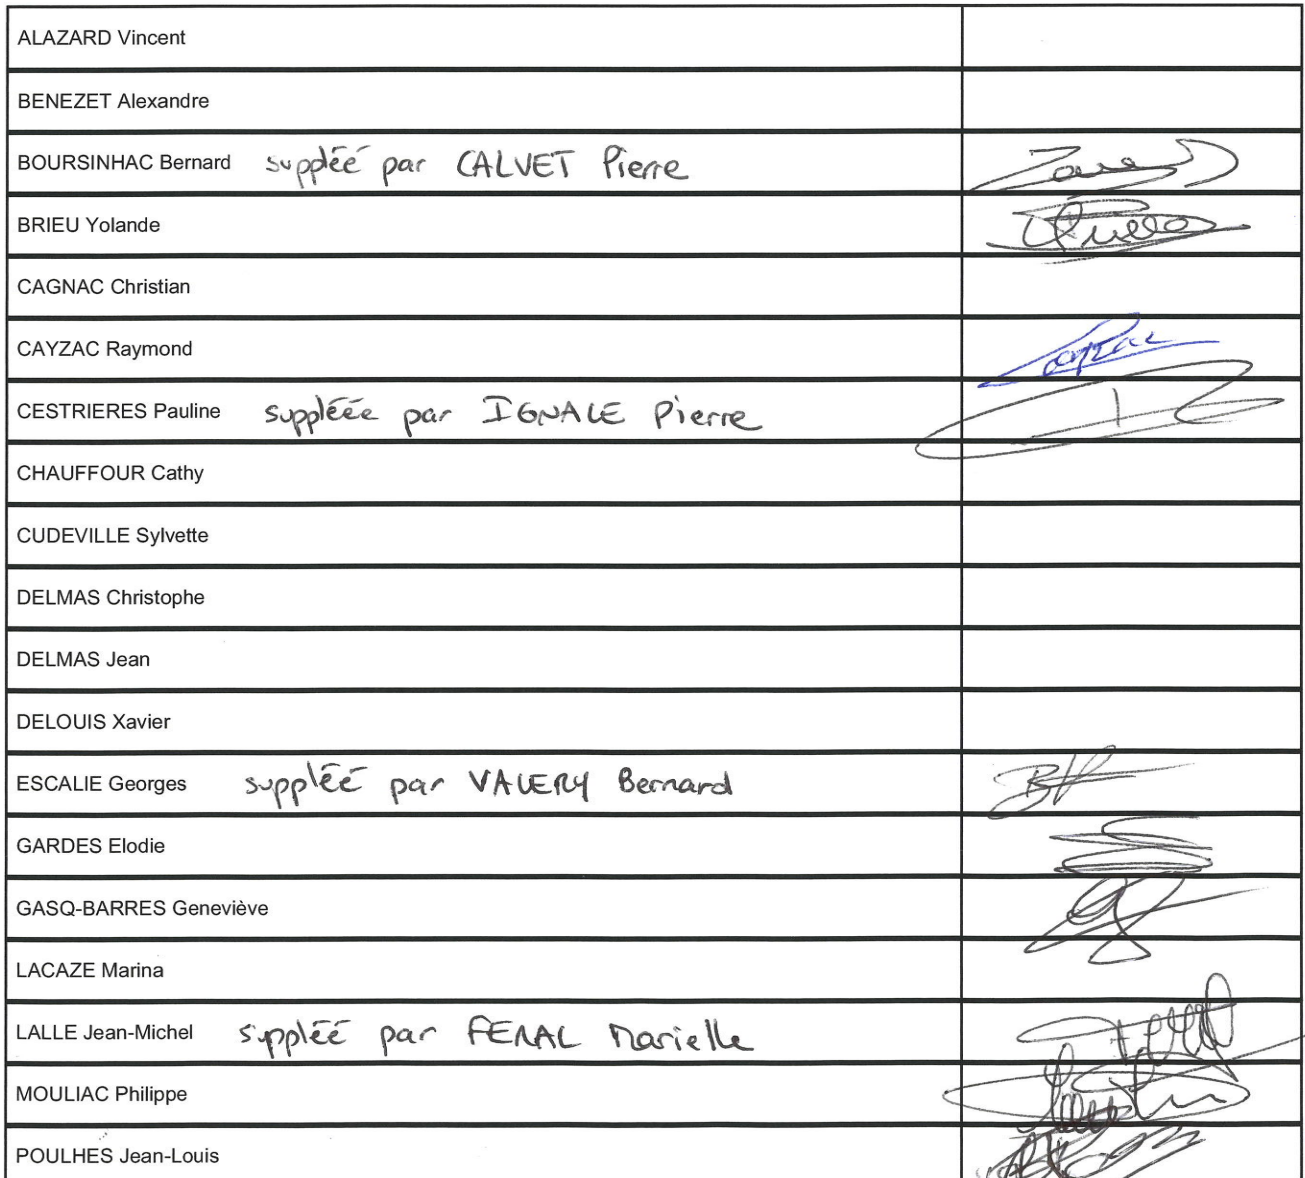 ALAZARD Vincent
BENEZET Alexandre
BOURSINHAC Bernard suppléé par CALVET Pierre
BRIEU Yolande
CAGNAC Christian
CAYZAC Raymond Cayzac
CESTRIERES Pauline suppléée par IGNALE Pierre
CHAUFFOUR Cathy
CUDEVILLE Sylvette
DELMAS Christophe
DELMAS Jean
DELOUIS Xavier
ESCALIE Georges suppléé par VALERY Bernard
GARDES Elodie
GASQ-BARRES Geneviève
LACAZE Marina
LALLE Jean-Michel suppléé par FERAL Marielle
MOULIAC Philippe
POULHES Jean-Louis